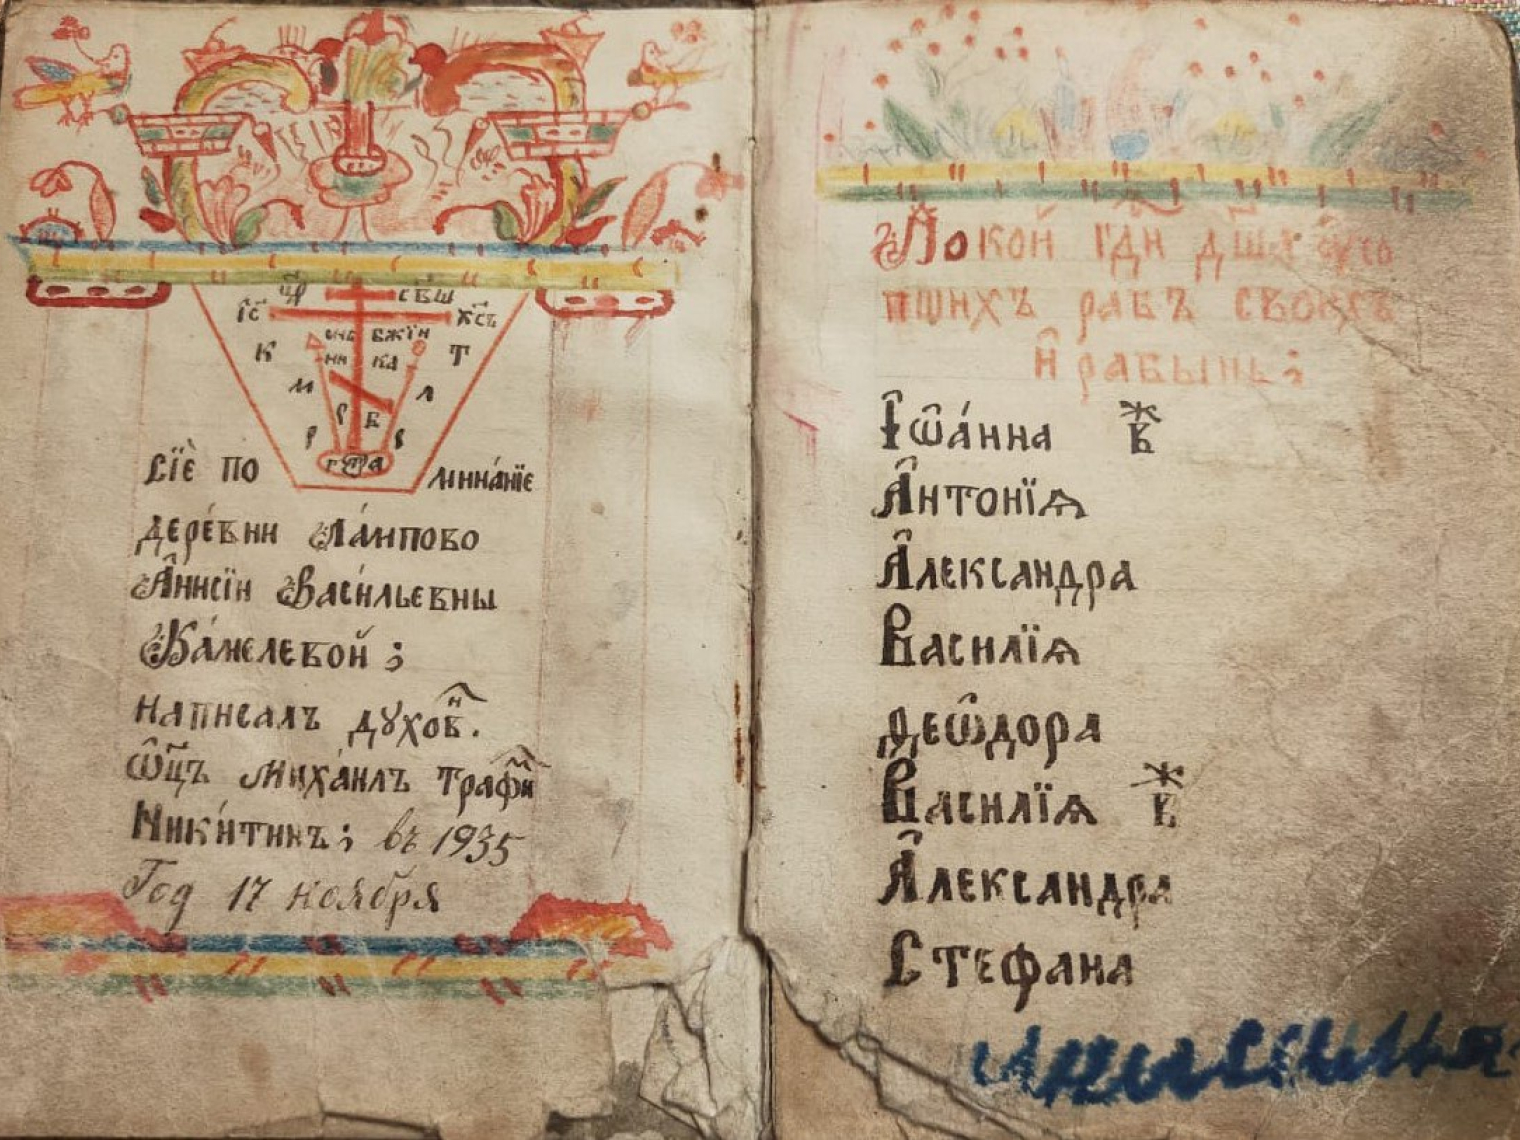 цр҃ сл҃вы
І҃с Х҃съ
сн҃ъ бж҃їи
ни ка
К Т
М Л
Р Б
Р Р
г҃ а҃
Сїѐ по минанїе
дере́вни Ла́мпово
А҆нисїи Васи́льевны
Ка́мелевой;
написалъ духовⷩ҇.
Ѿц҃ъ Миха́илъ Трафиⷨ
Ники́тинъ; въ 1935
Год 17 ноября
Покой гд҃и дш҃а усо
пшихъ рабъ своихъ
и҆ рабынь;
І҆ѡа́нна в҃ ж
А҆нтонїѧ
А҆леѯандра
Василїѧ
Ѳеѡдора
Василїѧ в҃ ж
А҆леѯандра
Стефана